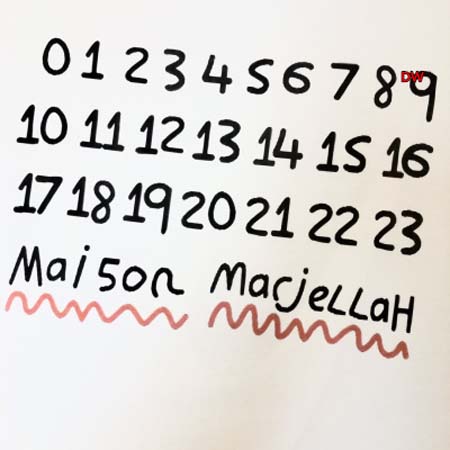 0 1 2 3 4 5 6 7 8 9
DW
10 11 12 13 14 15 16
17 18 19 20 21 22 23
Maison MarjeLLaH